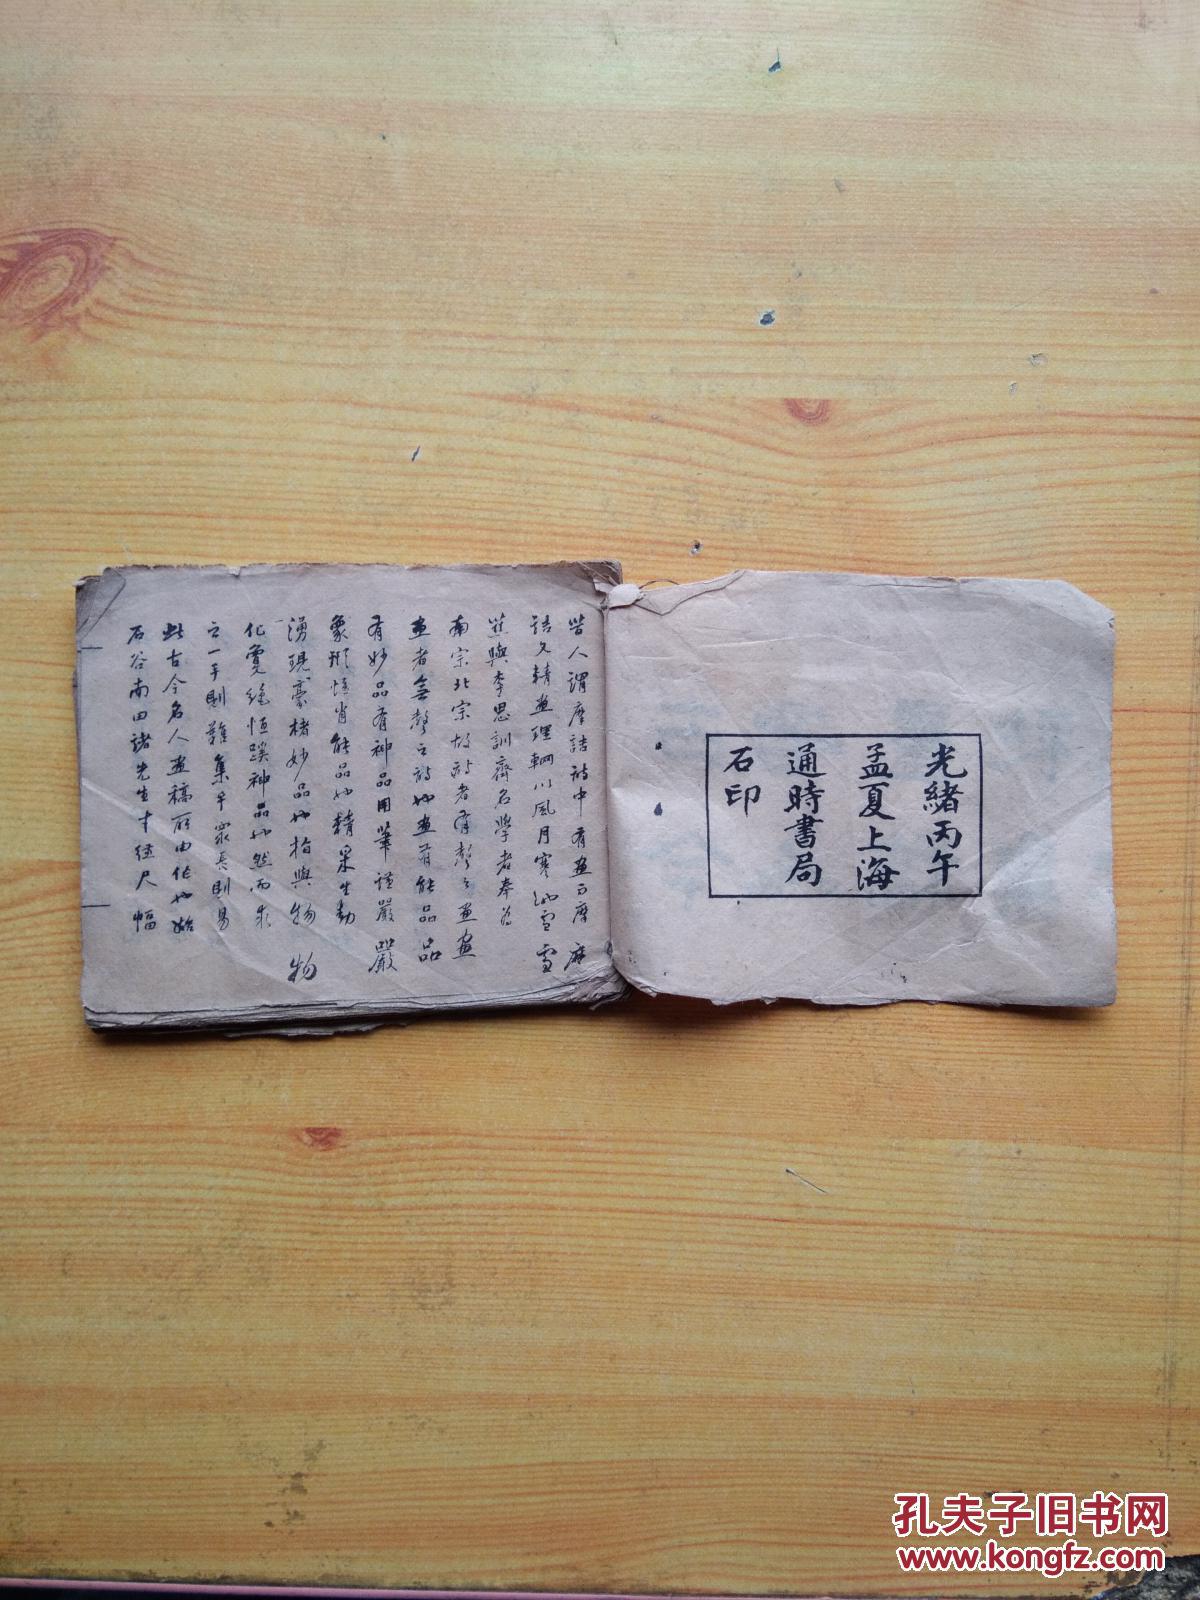 光緒丙午
孟夏上海
通時書局
石印
昔人謂摩詰詩中有畫而摩
詰文精畫理輞川風月寒江雪
並與李思訓齊名學者奉為
南宗北宗故詩者有聲之畫畫
畫者無聲之詩也畫有能品
有妙品有神品用筆謹嚴
象形恆肖能品也精采生動
湧現豪楮妙品也指與物
化變絕恆蹊神品也然而求
之一手則難集乎眾長則易
此古今名人畫稿所由作也始
石谷南田諸先生寸縑尺幅
孔夫子旧书网
www.kongfz.com